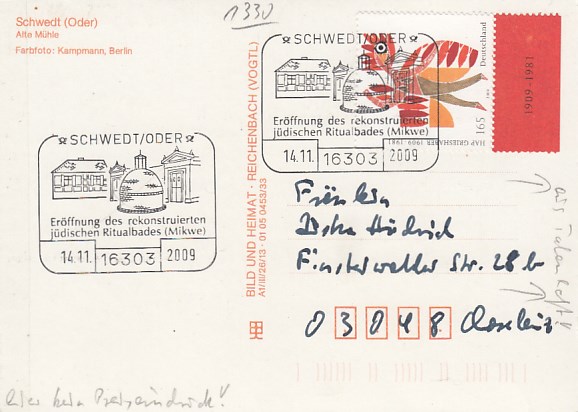 Schwedt (Oder)
Alte Mühle
Farbfoto: Kampmann, Berlin
1330
SCHWEDT/ODER
Eröffnung des rekonstruierten
jüdischen Ritualbades (Mikwe)
14.11. 16303 2009
SCHWEDT/ODER
Eröffnung des rekonstruierten
jüdischen Ritualbades (Mikwe)
14.11. 16303 2009
BILD UND HEIMAT · REICHENBACH (VOGTL)
A1/III/26/13 · 01 05 0453/33
Deutschland
165
HAP GRIESHABER 1909-1981
1909-1981
Finsterwalder Str. 28b
03048
hier kein Preiseindruck!